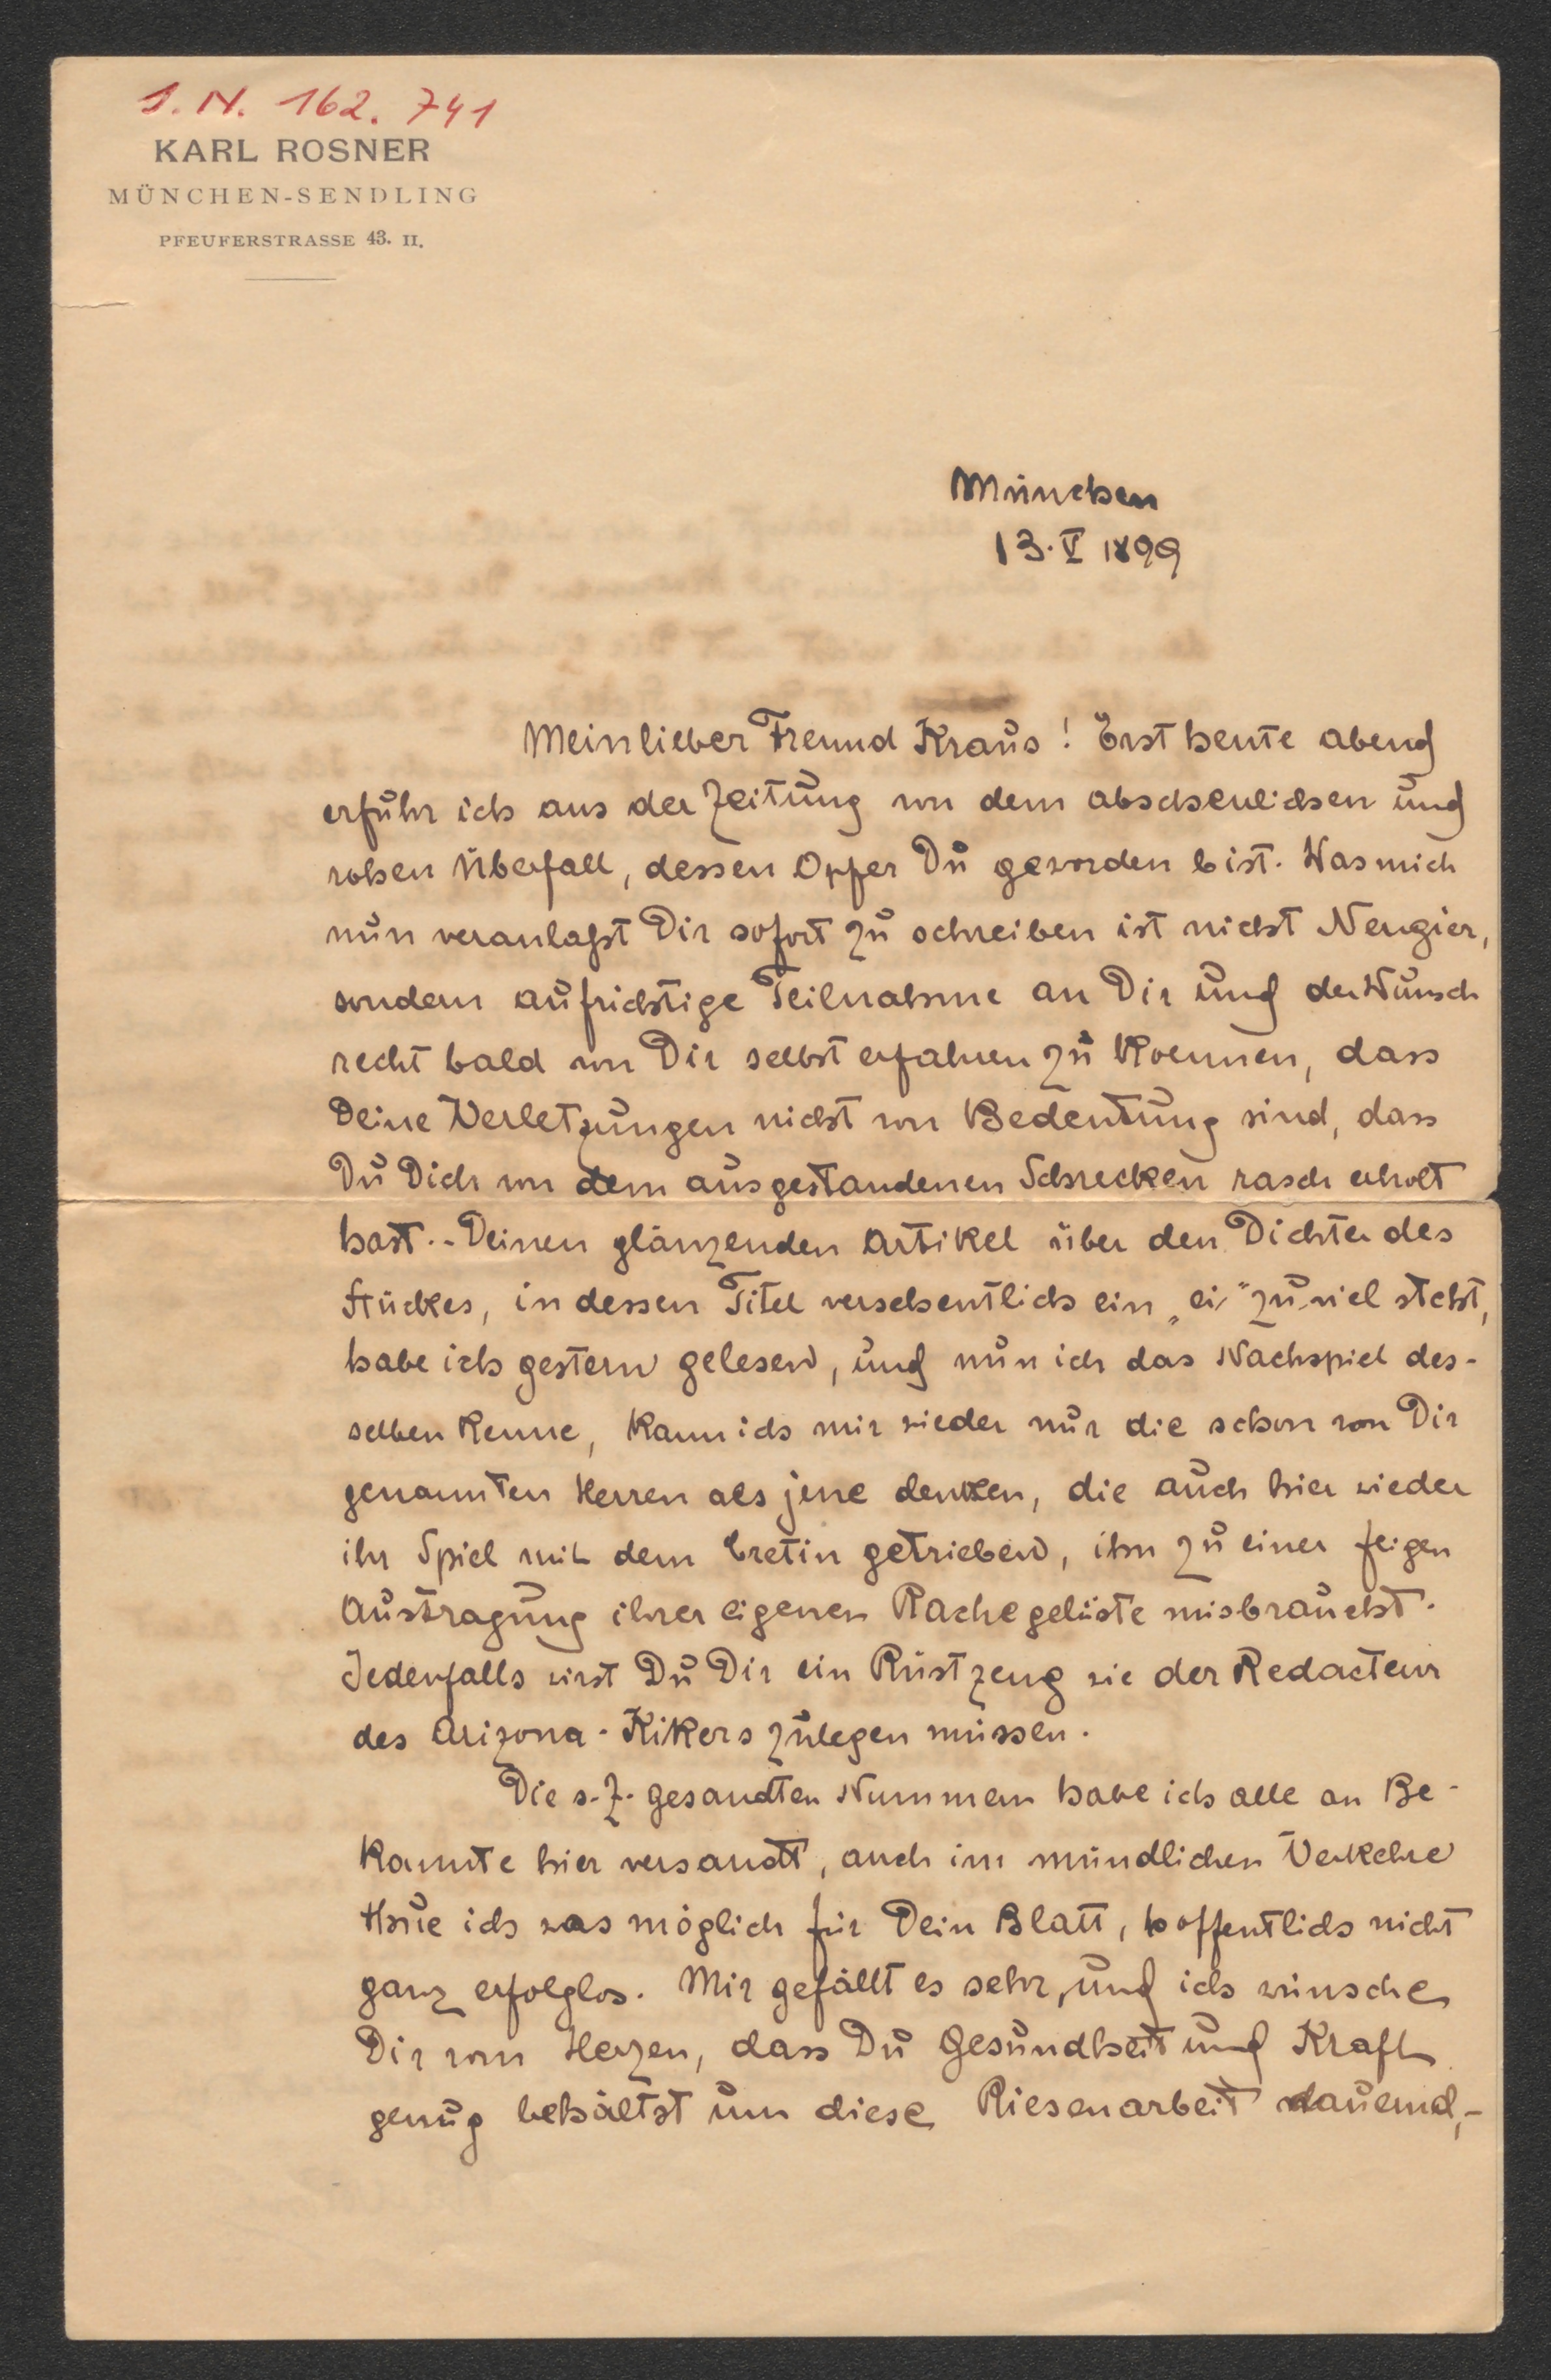 I. N. 162. 741
KARL ROSNER
MÜNCHEN-SENDLING
PFEUFERSTRASSE 43. II.
München
13. V 1899
Mein lieber Freund Kraus! Erst heute abend
erfuhr ich aus der Zeitung von dem abscheulichen und
rohen Überfall, dessen Opfer Du geworden bist. Was mich
nun veranlaßt Dir sofort zu schreiben ist nicht Neugier,
sondern aufrichtige Teilnahme an Dir und der Wunsch
recht bald von Dir selbst erfahren zu koennen, dass
Deine Verletzungen nicht von Bedeutung sind, dass
Du Dich von dem ausgestandenen Schrecken rasch erholt
hast. - Deinen glänzenden Artikel über den Dichter des
Stückes, in dessen Titel versehentlich ein „ei“ zu viel steht,
habe ich gestern gelesen, und nun ich das Nachspiel des-
selben kenne, kann ich mir wieder nur die schon von Dir
genannten Herren als jene denken, die auch hier wieder
ihr Spiel mit dem Cretin getrieben, ihn zu einer feigen
Austragung ihrer eigenen Rachegelüste misbraucht.
Jedenfalls wirst Du Dir ein Rüstzeug wie der Redacteur
des Arizona-Kikers zulegen müssen.
Die s. Z. gesandten Nummern habe ich alle an Be-
kannte hier versandt, auch im mündlichen Verkehre
thue ich was möglich für Dein Blatt, hoffentlich nicht
ganz erfolglos. Mir gefällt es sehr, und ich wünsche
Dir von Herzen, dass Du Gesundheit und Kraft
genug behältst um diese Riesenarbeit dauernd, -